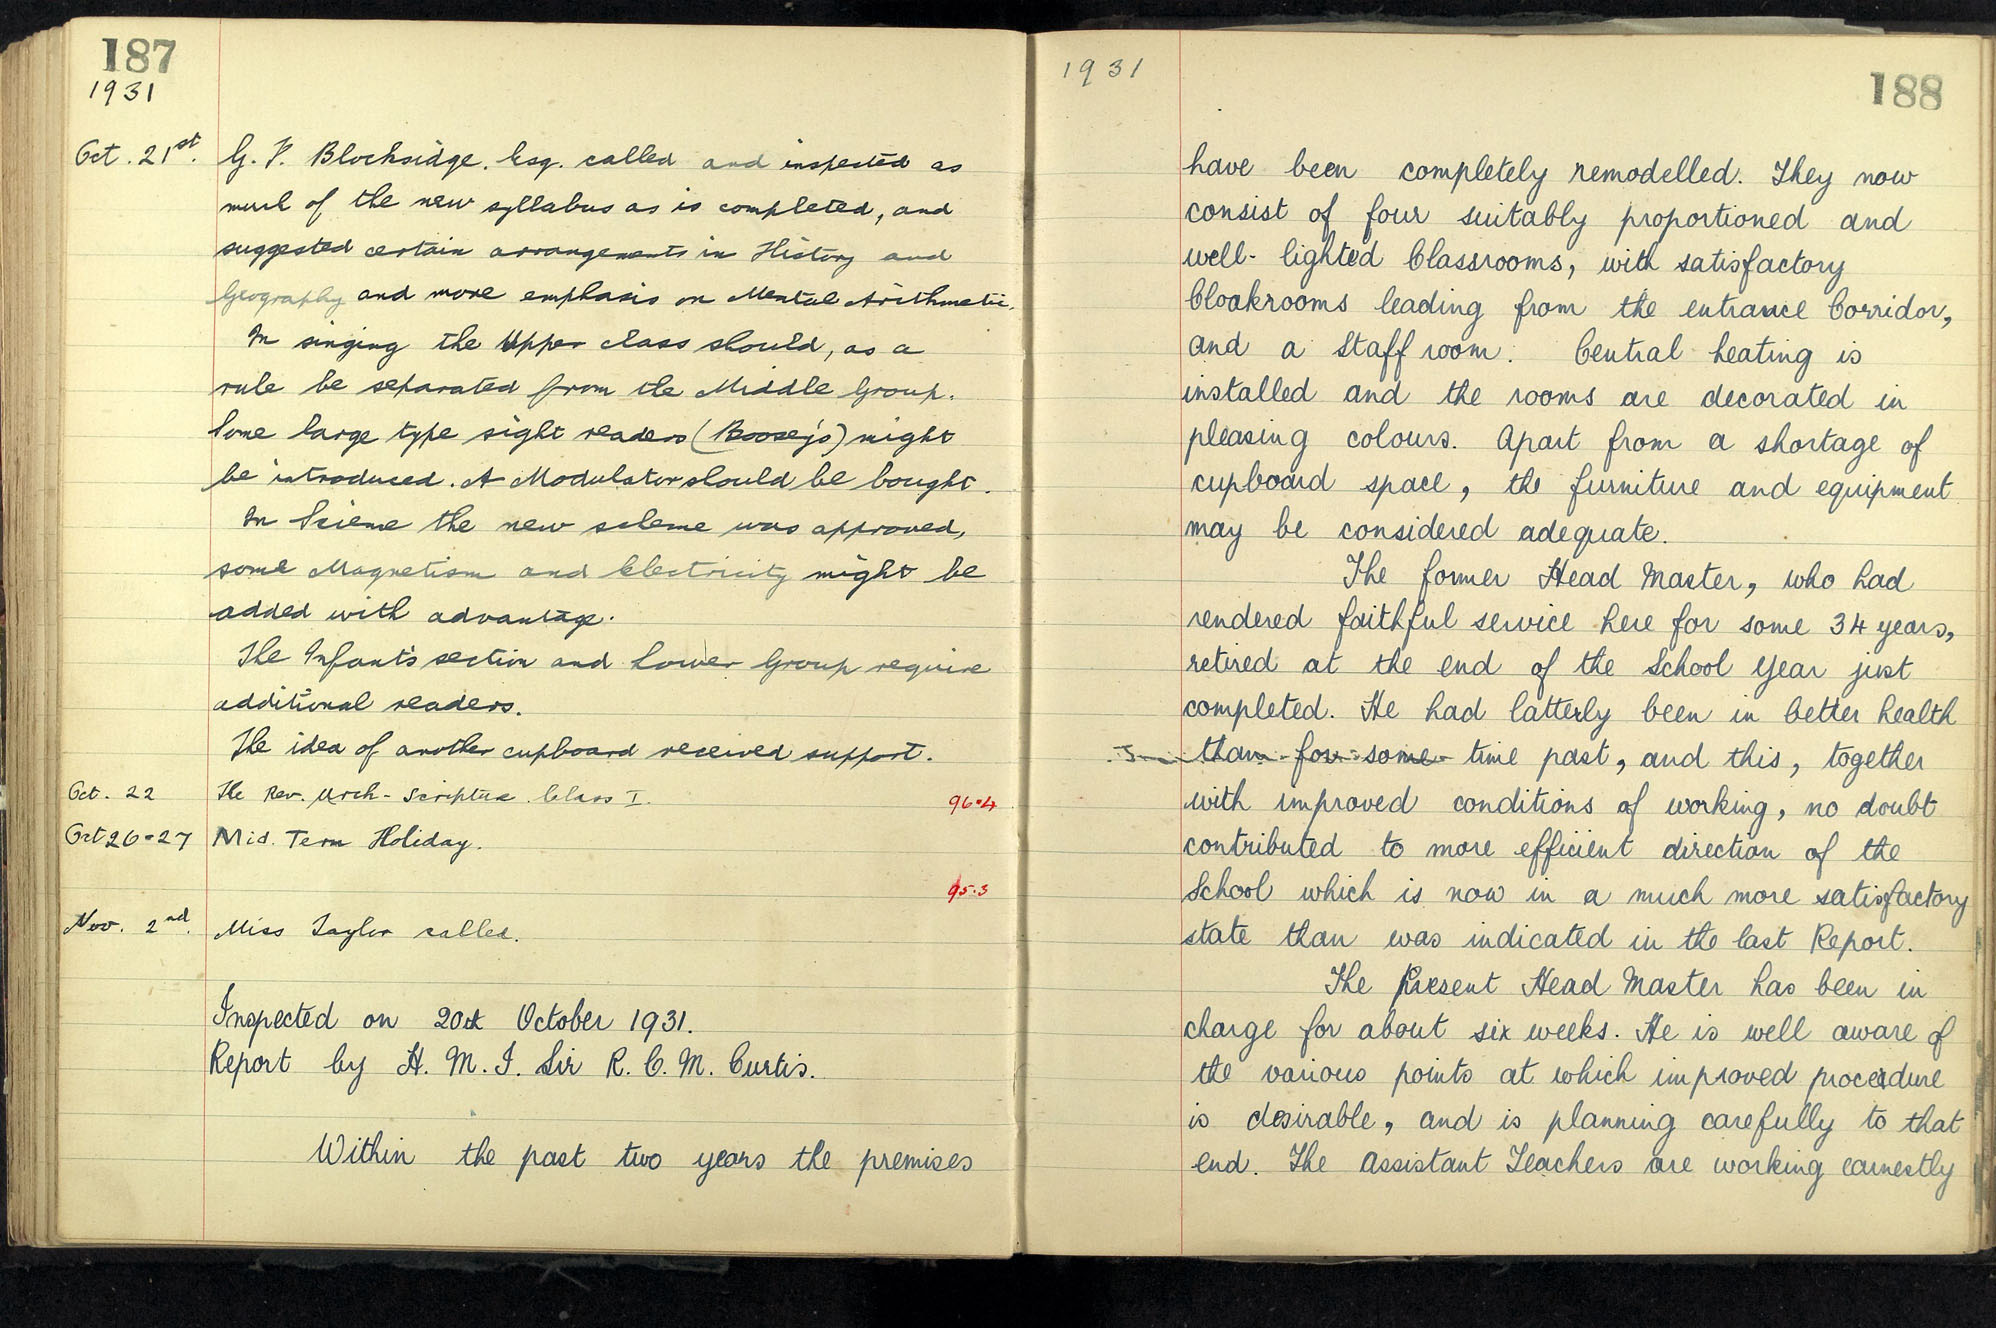 187
1931
Oct. 21st. G. F. Blocksidge. Esq. called and inspected as
much of the new syllabus as is completed, and
suggested certain arrangements in History and
Geography and more emphasis on Mental Arithmetic.
In singing the Upper class should, as a
rule be separated from the Middle Group.
Some large type sight readers (Boosey's) might
be introduced. A Modulator should be bought.
In Science the new scheme was approved,
some Magnetism and Electricity might be
added with advantage.
The Infants section and Lower Group require
additional readers.
The idea of another cupboard received support.
Oct. 22 The Rev. Urch - Scripture. Class I. 96.4
Oct 26-27 Mid. Term Holiday.
95.3
Nov. 2nd. Miss Taylor called.
Inspected on 20th October 1931.
Report by H. M. I. Sir R. C. M. Curtis.
Within the past two years the premises
1931
188
have been completely remodelled. They now
consist of four suitably proportioned and
well-lighted Classrooms, with satisfactory
Cloakrooms leading from the entrance Corridor,
and a Staff room. Central heating is
installed and the rooms are decorated in
pleasing colours. Apart from a shortage of
cupboard space, the furniture and equipment
may be considered adequate.
The former Head Master, who had
rendered faithful service here for some 34 years,
retired at the end of the School Year just
completed. He had latterly been in better health
than for some time past, and this, together
with improved conditions of working, no doubt
contributed to more efficient direction of the
School which is now in a much more satisfactory
state than was indicated in the last Report.
The Present Head Master has been in
charge for about six weeks. He is well aware of
the various points at which improved procedure
is desirable, and is planning carefully to that
end. The Assistant Teachers are working earnestly